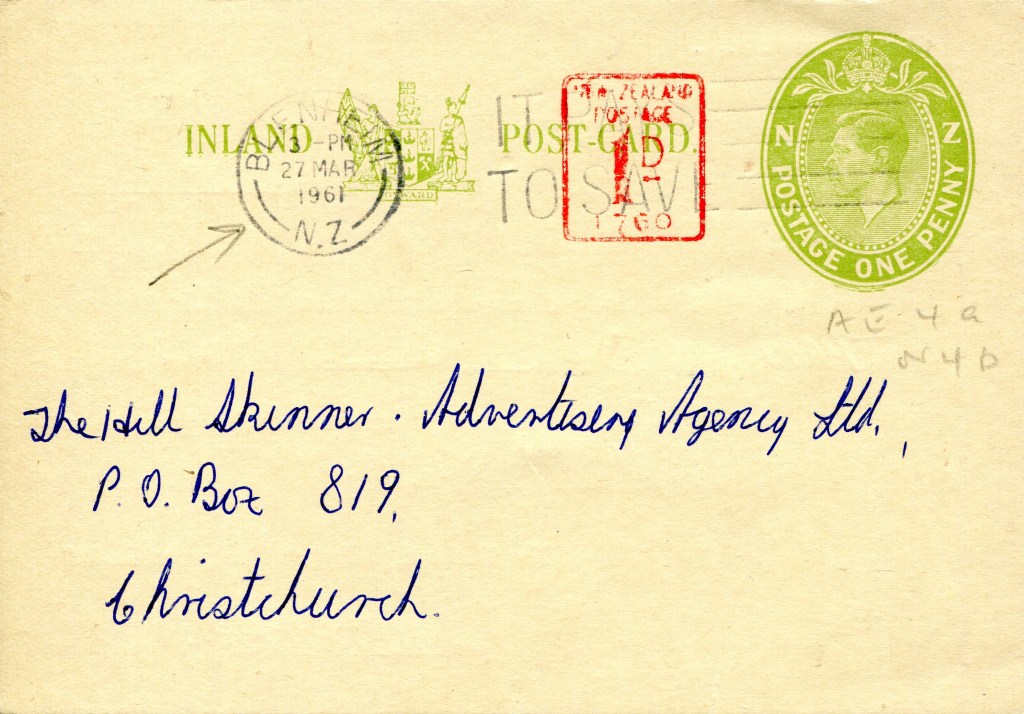 INLAND POST-CARD.
BLENHEIM
3 - PM
27 MAR
1961
N.Z
IT PAYS
TO SAVE
NEW ZEALAND
POSTAGE
1D
1760
N Z
POSTAGE ONE PENNY
AE 4 a
N4b
The Hill Skinner. Advertising Agency Ltd.,
P. O. Box 819,
Christchurch.